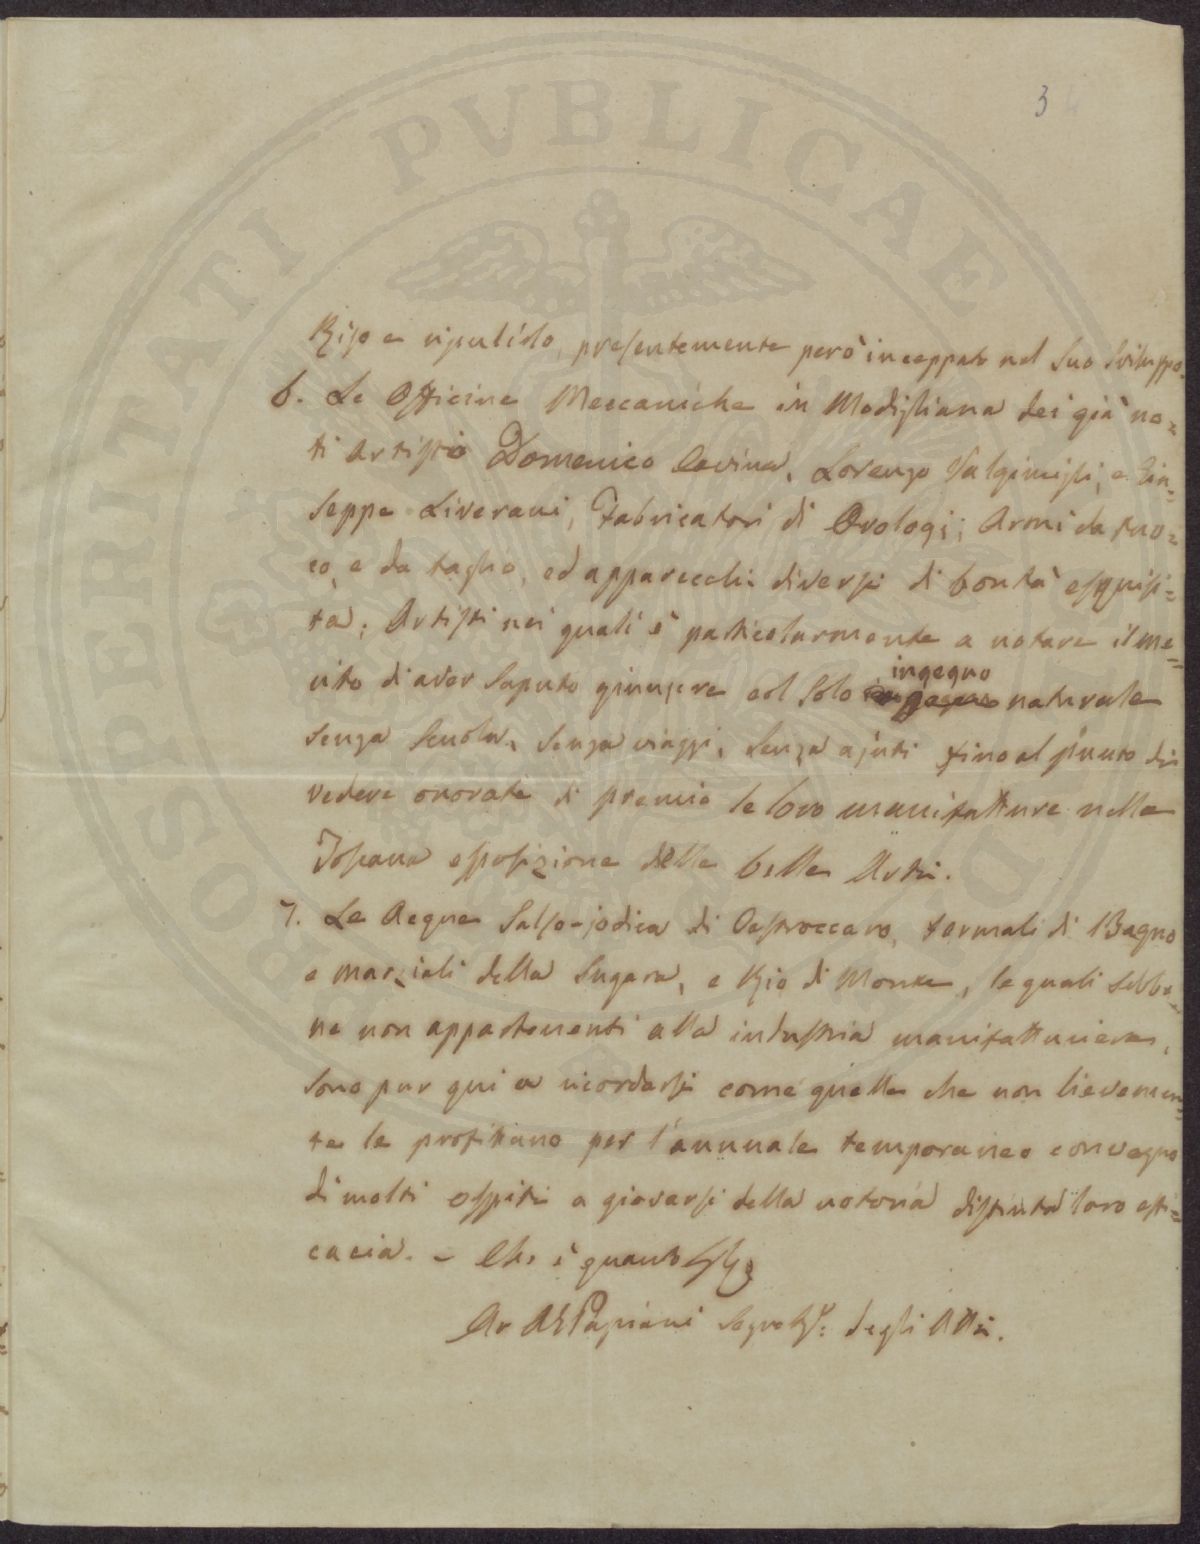 3
Riso e ripulirlo, presentemente però inceppato nel suo sviluppo.
6. Le Officine Meccaniche in Modigliana dei già no=
ti Artisti Domenico Cavina, Lorenzo Valgimigli, e Giu=
seppe Liverani, Fabricatori di Orologi, Armi da fuo=
co, e da taglio, ed apparecchi diversi di bontà esquisi=
ta; Artisti nei quali è particolarmente a notare il me=
rito di aver saputo giungere col solo ingegno naturale
senza scuola, senza viaggi, senza ajuti fino al punto di
vedere onorate di premio le loro manifatture nella
Toscana esposizione delle belle Arti.
7. Le Acque Salso-jodica di Castroccaro, termali di Bagno
e marziali della Sugara, e Rio di Monte, le quali sebbe=
ne non appartenenti alla industria manifatturiera,
sono pur qui a ricordarsi come quelle che non lievemen=
te le profittano per l'annuale temporaneo convegno
di molti ospiti a giovarsi della notoria distinta loro effi=
cacia. - Che è quanto
Av Papiani Segret: degli Atti.
PROSPERITATI PVBLICAE